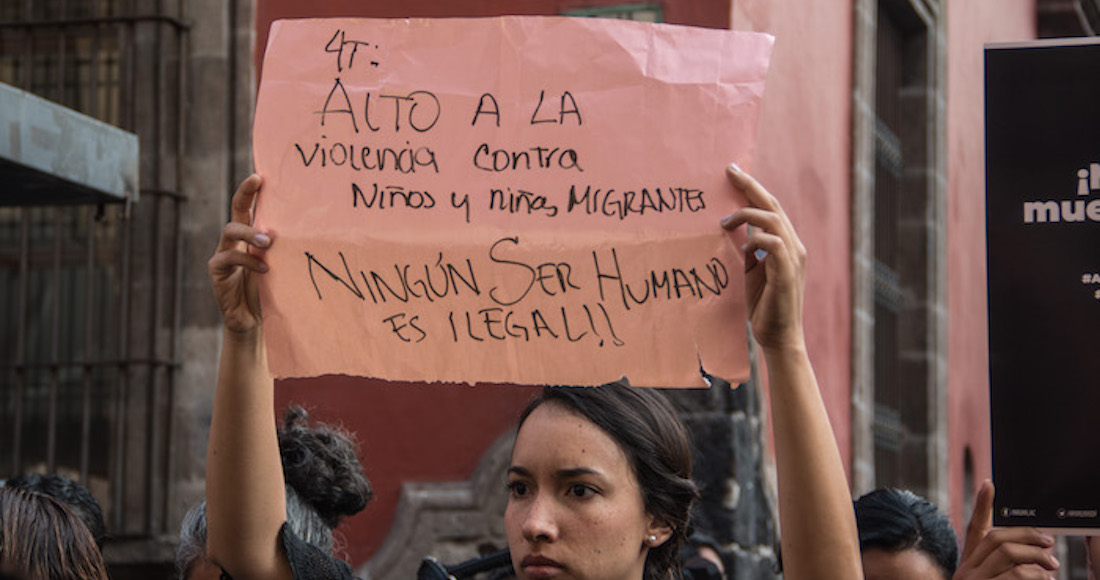 4T:
ALTO A LA
violencia contra
Niños y niñas MIGRANTES
NINGÚN SER HUMANO
ES ILEGAL!!